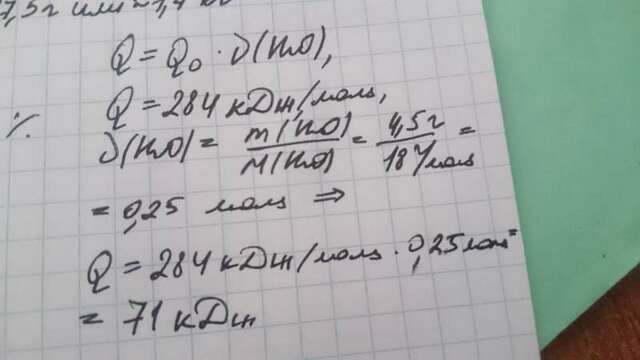 7,5г или ≈ 1,4 кг
Q = Q₀ · ν(H₂O),
Q = 284 кДж/моль,
ν(H₂O) = m(H₂O)/M(H₂O) = 4,5г/18г/моль =
= 0,25 моль ⇒
Q = 284 кДж/моль · 0,25моль =
= 71 кДж